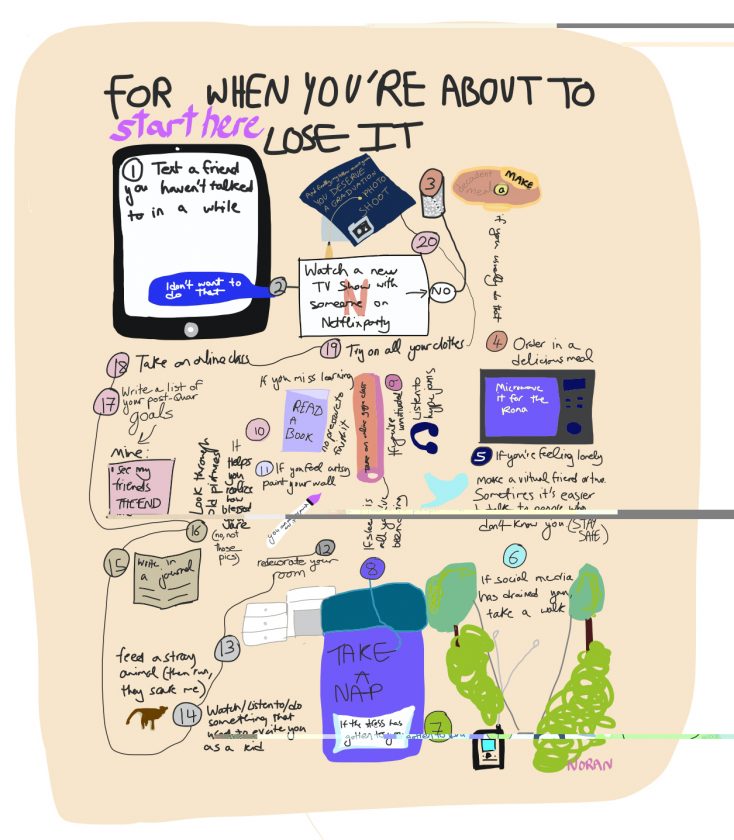 FOR WHEN YOU'RE ABOUT TO
LOSE IT
start here
1 Text a friend
you haven't talked
to in a while
I don't want to
do that
2
Watch a new
TV Show with
someone on
Netflixparty
N
NO
3
decadent
meal
MAKE
a
if you
4 Order in a
delicious meal
Microwave
it for the
Rona
5 If you're feeling lonely
make a virtual friend
Sometimes it's easier
to talk to people who
don't know you (STAY
SAFE)
6
If social media
has drained you,
take a walk
7
If the stress has
gotten to you
gotten to you
8
TAKE
A
NAP
If sleep is
all you've
been
9
Listen to
hype jams
If you're
unmotivated
Take an online yoga class
10
If you miss learning
READ
A
BOOK
no pressure to
finish it
11 If you feel artsy
paint your wall
you are
12
redecorate your
room
13
feed a stray
animal (then run,
they scare me)
14
Watch/Listen to/do
something that
used to excite you
as a kid
15
Write in
a journal
16
Look through
old pictures
It
helps
you
realize
how
blessed
you are
(no, not
those
pics)
17
Write a list of
your post-Quar
goals
Mine:
• see my
friends
THE END
18 Take an online class
19 Try on all your clothes
20
And finally,
YOU DESERVE
A GRADUATION
PHOTO
SHOOT
NORAN